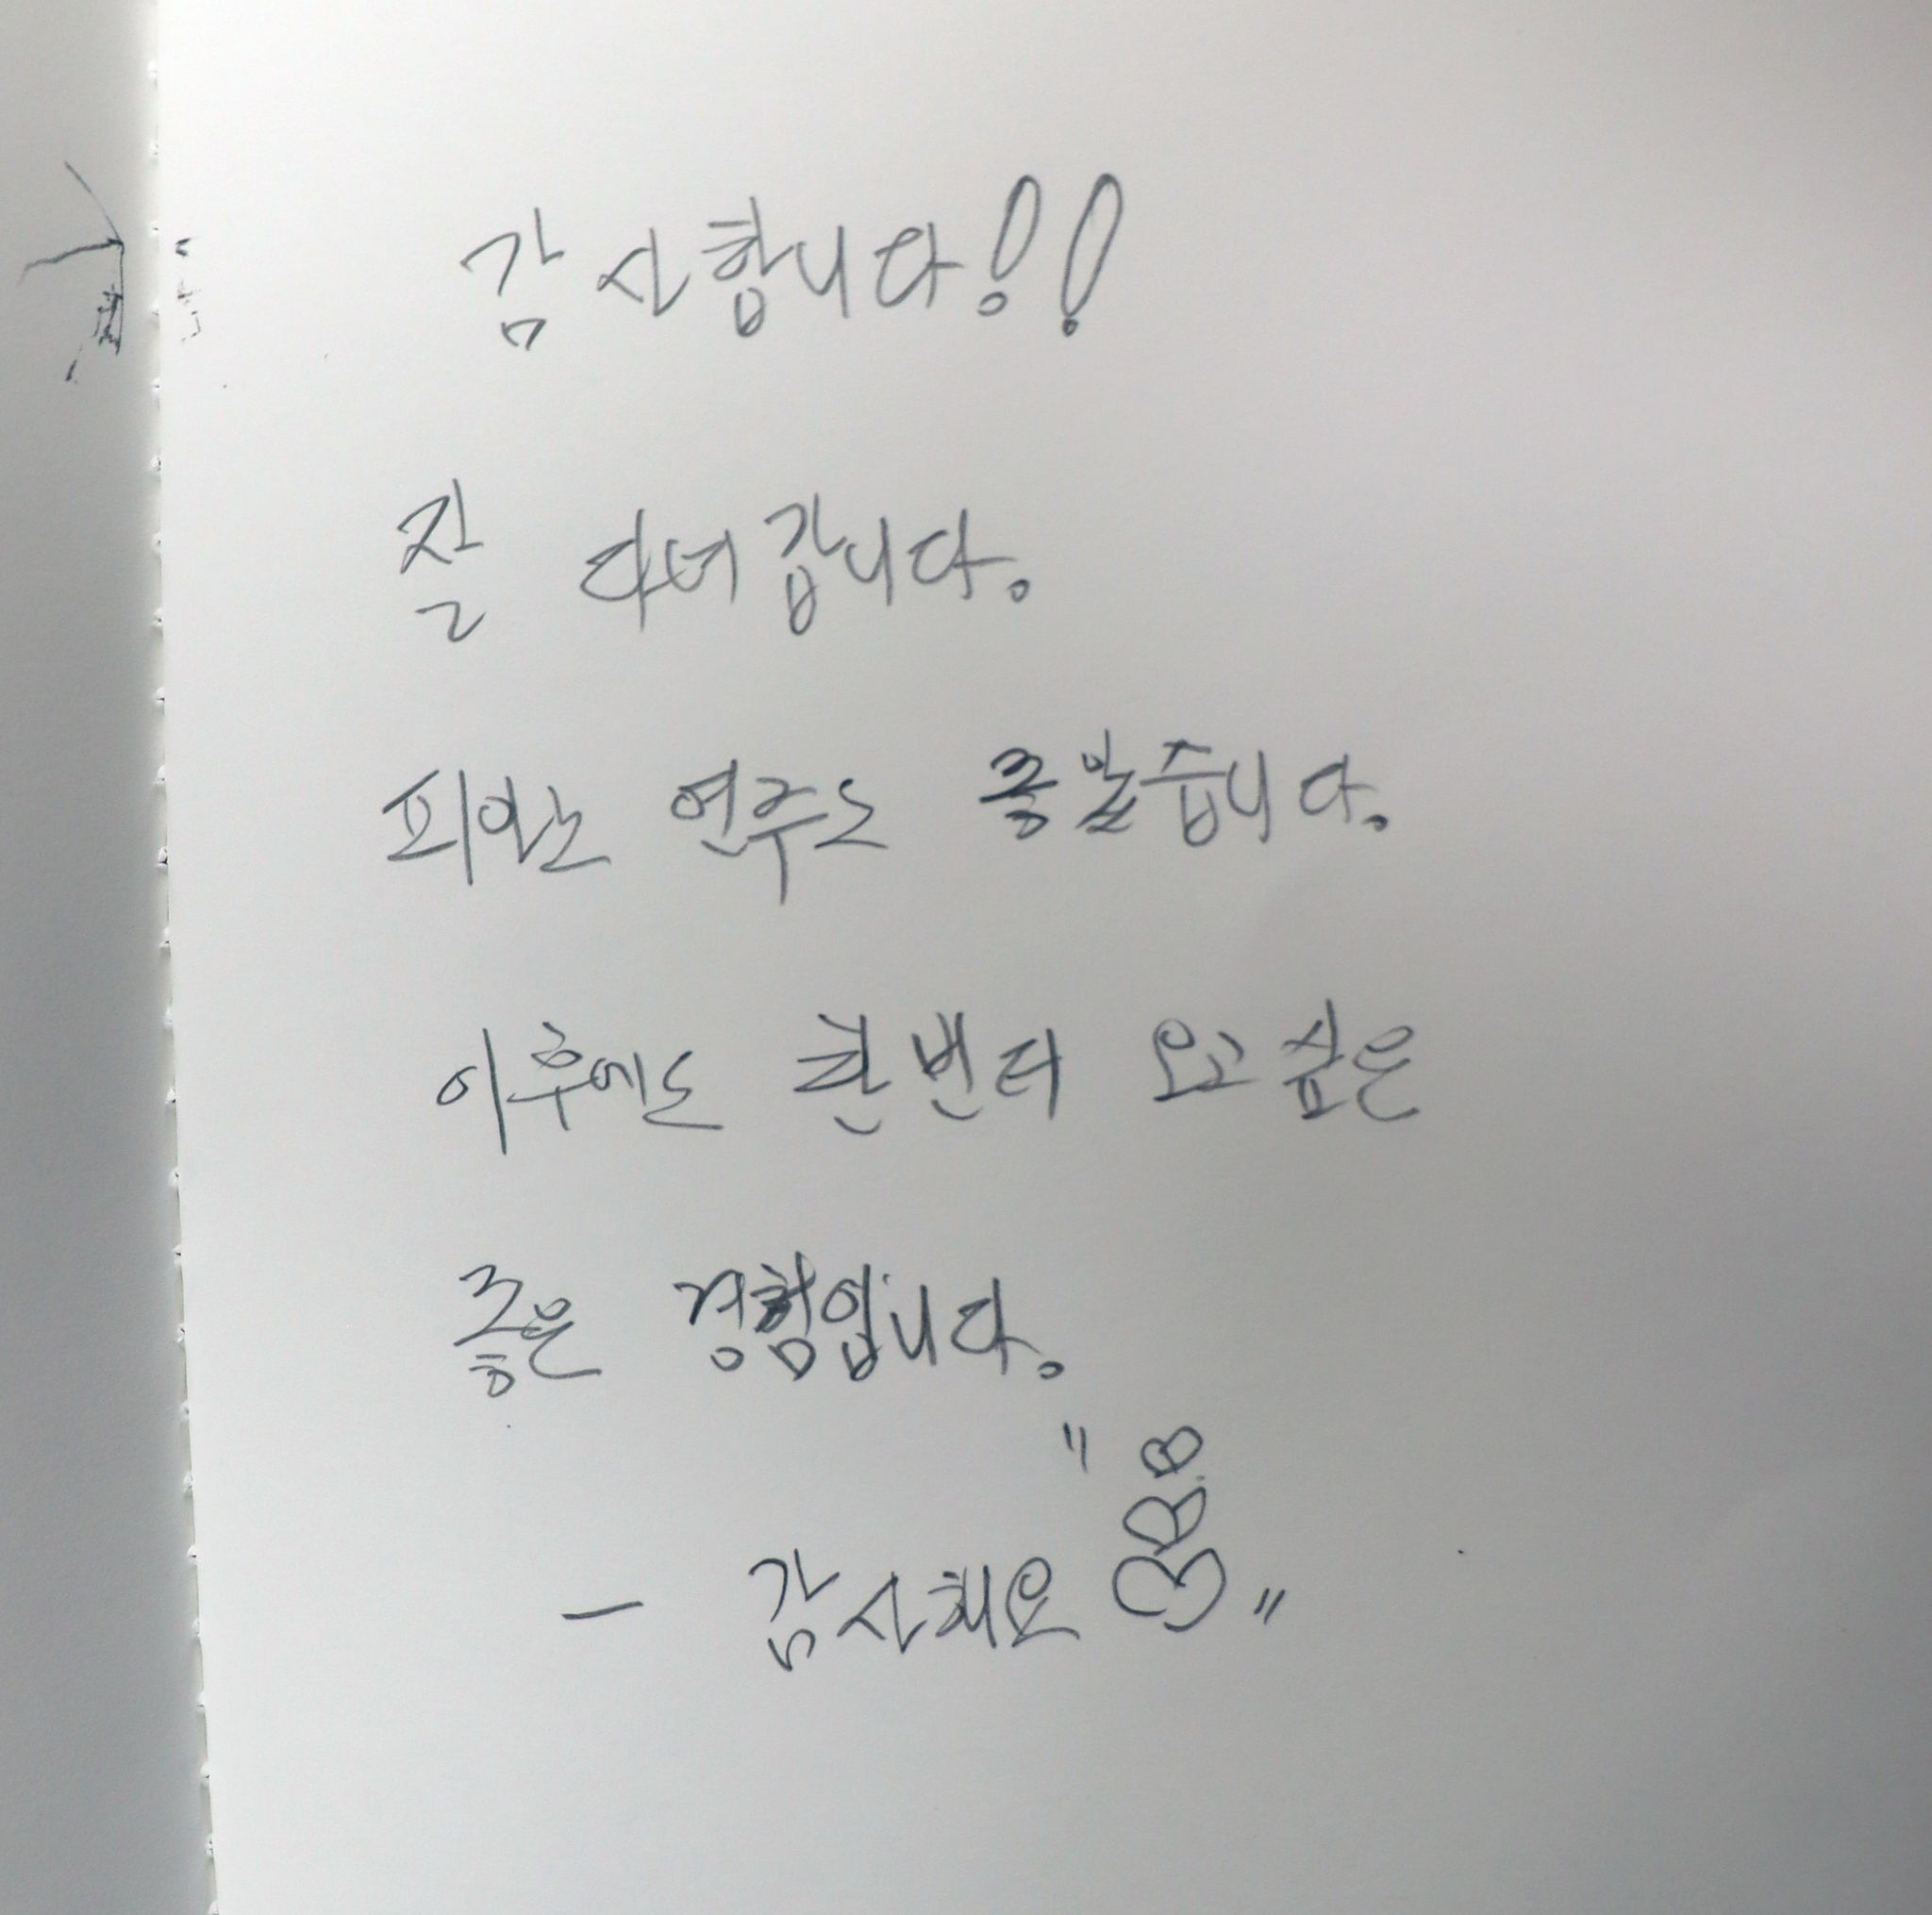 감사합니다!!
잘 다녀갑니다.
피아노 연주도 좋았습니다.
이후에도 한번 더 오고싶은
좋은 경험입니다.
- 감사해요